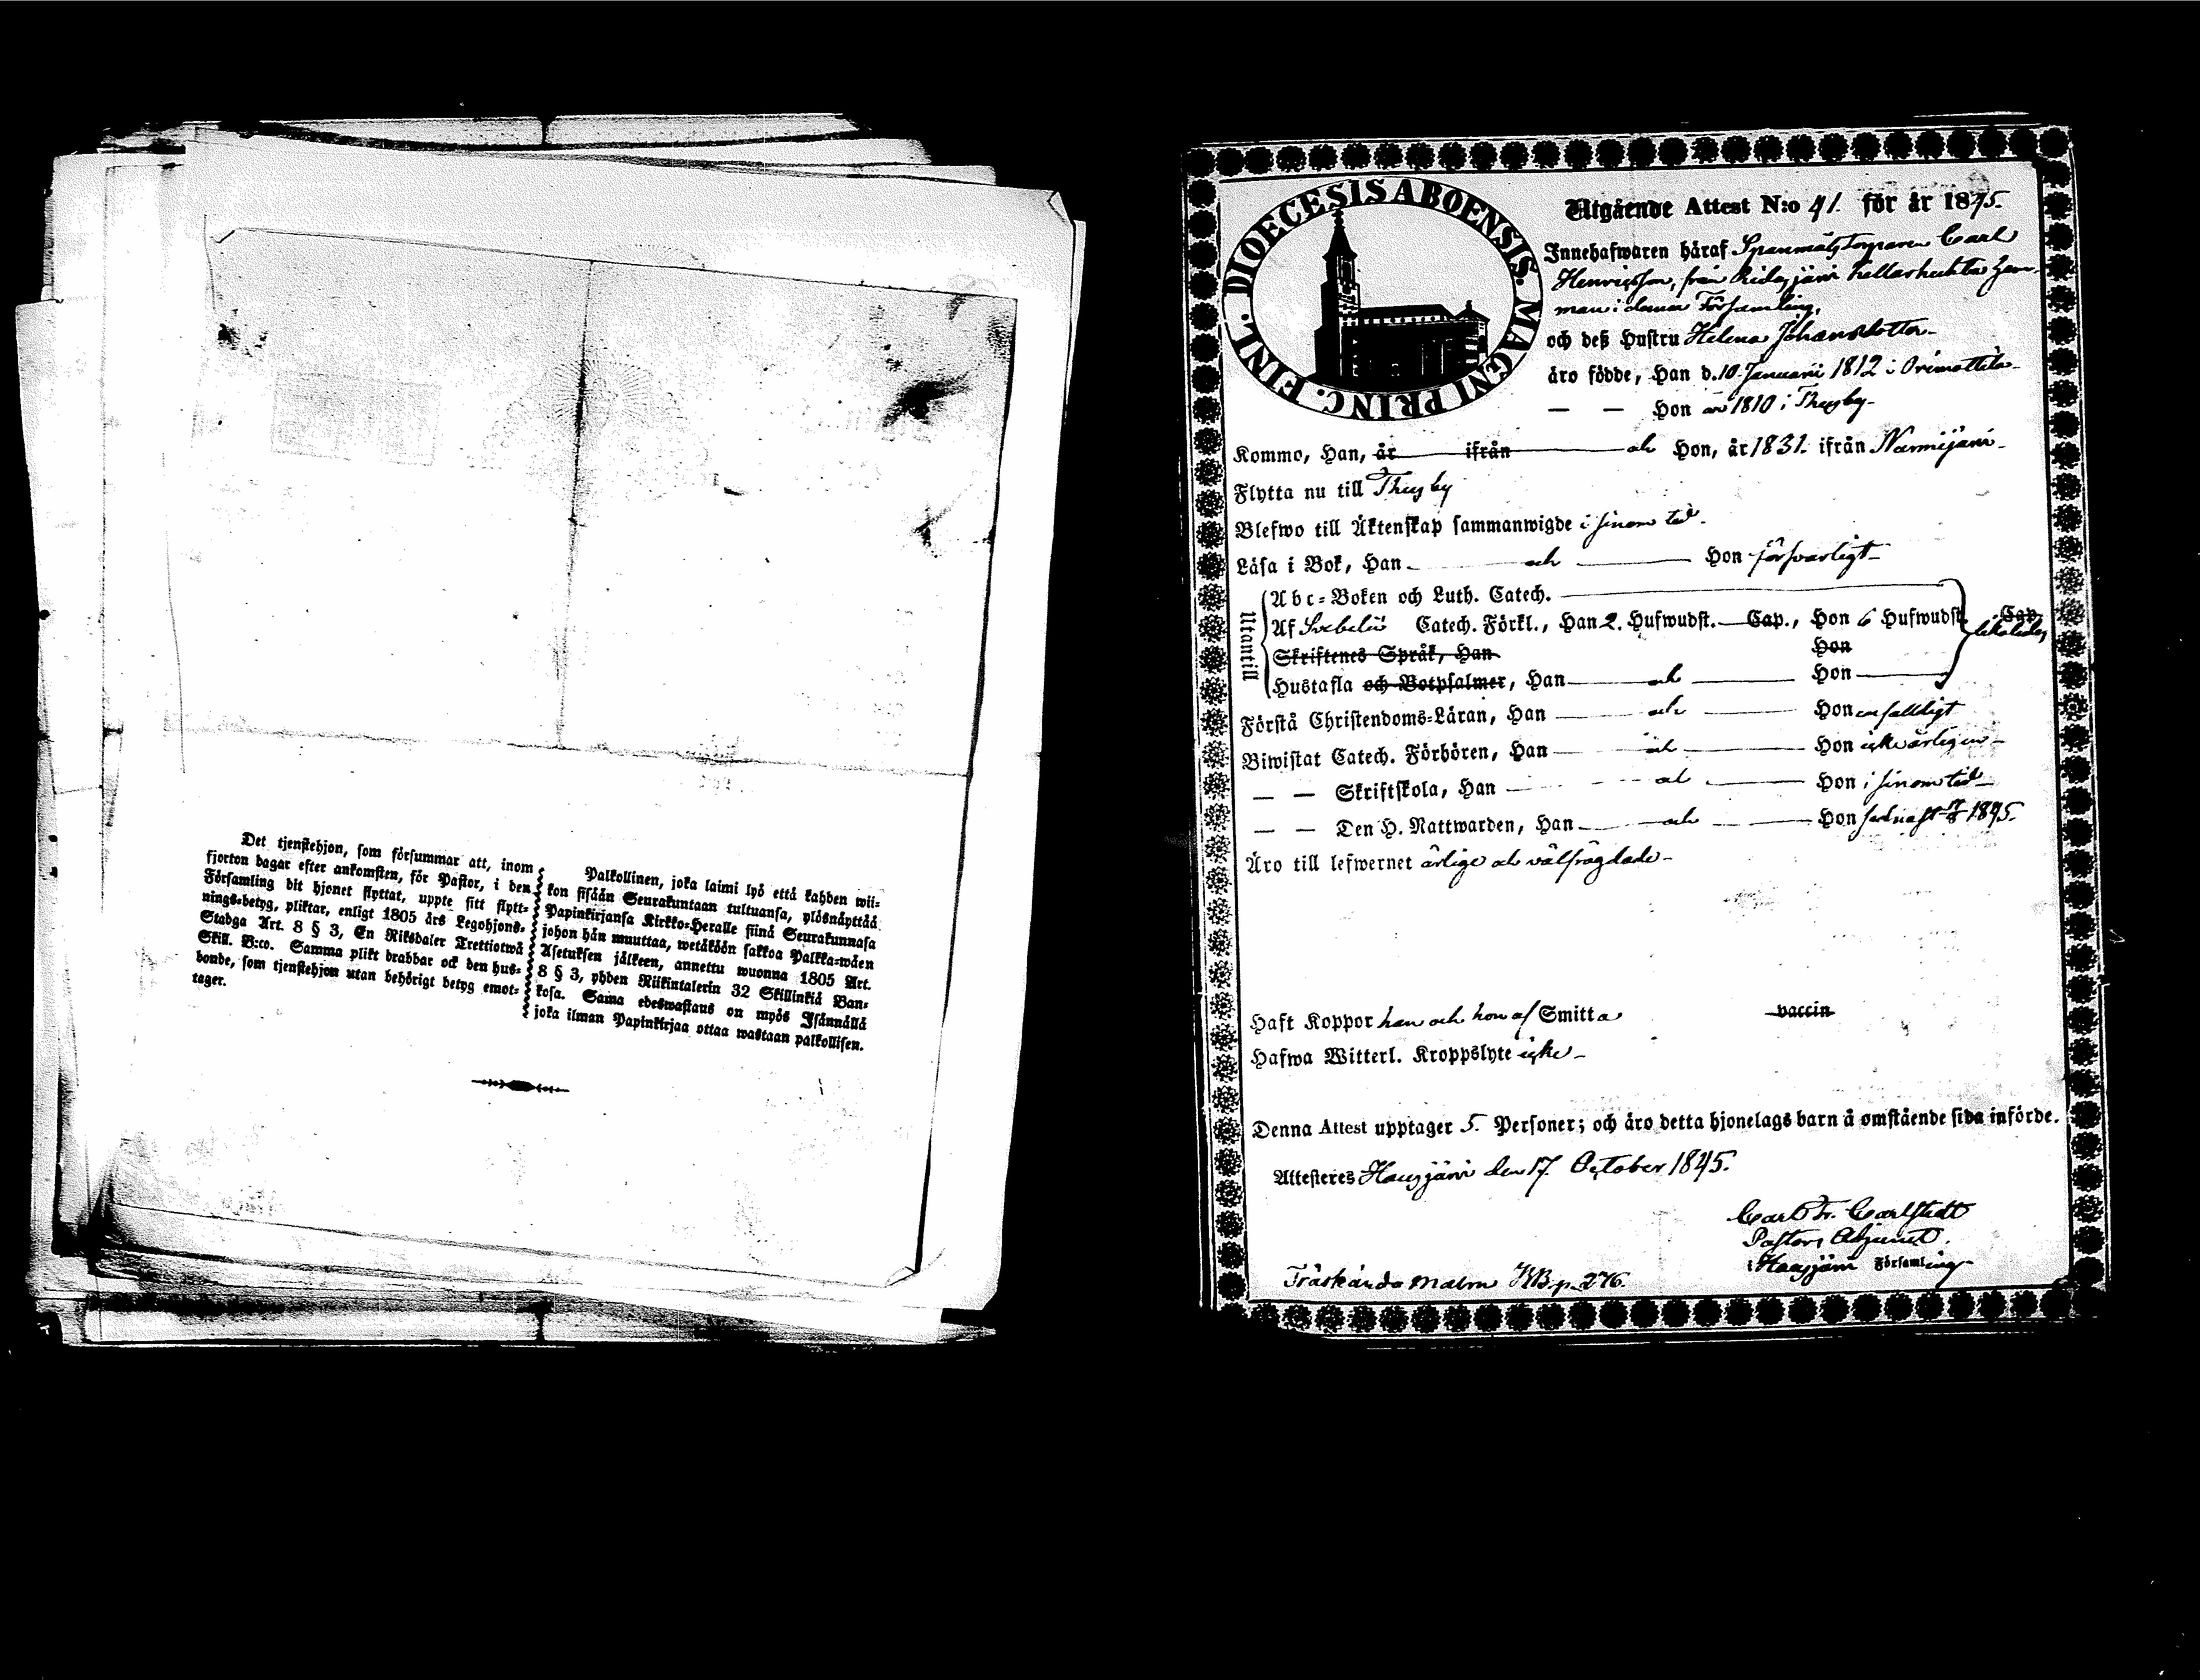 Det tjenstehjon, som försummar att, inom
fjorton dagar efter ankomsten, för Pastor, i den
Församling dit hjonet flyttat, uppte sitt flytt-
nings-betyg, pliktar, enligt 1805 års Legohjons-
Stadga Art. 8 § 3, En Riksdaler Trettiotwå
Skill. B:co. Samma plikt drabbar ock den hus-
bonde, som tjenstehjon utan behörigt betyg emot-
tager.
Palkollinen, joka laimi lyö että kahden wii-
kon sisään Seurakuntaan tultuansa, ylösnäyttää
Papinkirjansa Kirkko-Heralle siinä Seurakunnasa
johon hän muuttaa, wetäköön sakkoa Palkka-wäen
Asetuksen jälkeen, annettu wuonna 1805 Art.
8 § 3, yhden Riikintalerin 32 Skillinkiä Ban-
kosa. Sama edeswastaus on myös Isännällä
joka ilman Papinkirjaa ottaa wastaan palkollisen.
DIOECESIS ABOENSIS. MAGNI PRINC. FINL.
Utgående Attest N:o 41. för år 1845.
Innehafwaren häraf Spanmåls Torparen Carl
Henricsson, från
man i denna Församling,
och deß Hustru Helena Johansdotter
äro födde, Han d. 10 Januarii 1812 i Orimattila
— — Hon år 1810 i Thusby
Kommo, Han, år ifrån och Hon, år 1831. ifrån Nurmijärvi
Flytta nu till Thusby
Blefwo till Äktenskap sammanwigde i sinom tid.
Läsa i Bok, Han och Hon försvarligt
Utantill
Abc-Boken och Luth. Catech.
Af Svebelii Catech. Förkl., Han 2. Hufwudst. Cap., Hon 6 Hufwudst. Cap.
Skriftenes Språk, Han Hon
Hustafla och Botpsalmer, Han och Hon
Förstå Christendoms-Läran, Han och Hon enfaldigt
Biwistat Catech. Förhören, Han och Hon icke årligen
— — Skriftskola, Han och Hon i sinom tid
— — Den H. Nattwarden, Han och Hon sednast 1845.
Äro till lefwernet ärlige och välfrägdade
Haft Koppor han och hon af Smitta vaccin
Hafwa Witterl. Kroppslyte icke
Denna Attest upptager 5. Personer; och äro detta hjonelags barn å omstående sida införde.
Attesteres Hausjärvi den 17 October 1845.
Carl Fr. Carlstedt
Pastors Adjunct.
i Hausjärvi Församling
Träskända malm KB p. 276.